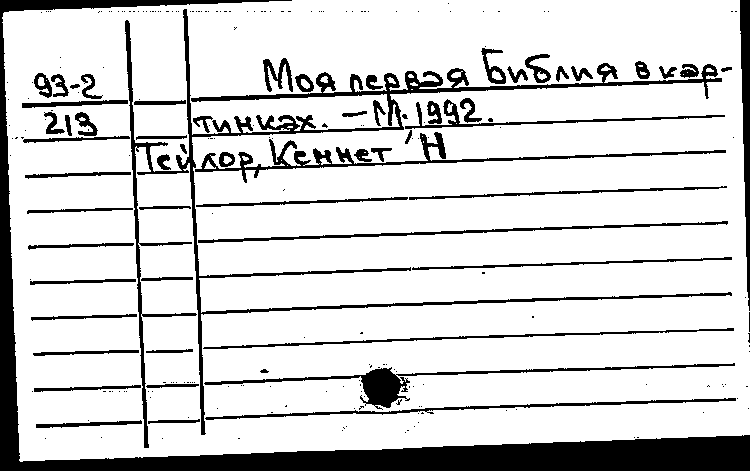 93-2 Моя первая Библия в кар-
213 тинках. – М. 1992.
Тейлор, Кеннет Н